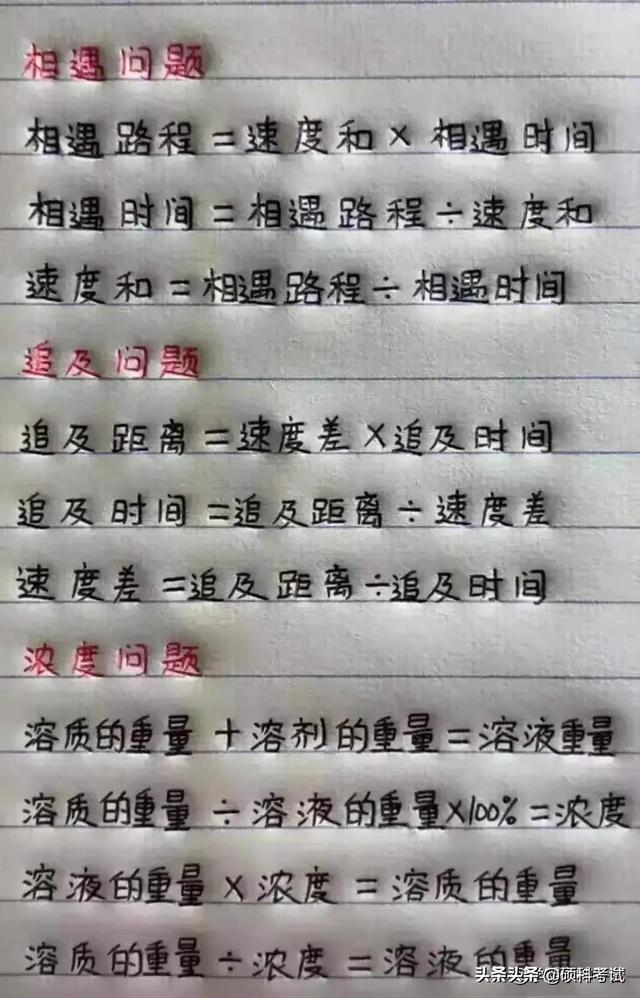 相遇问题
相遇路程=速度和×相遇时间
相遇时间=相遇路程÷速度和
速度和=相遇路程÷相遇时间
追及问题
追及距离=速度差×追及时间
追及时间=追及距离÷速度差
速度差=追及距离÷追及时间
浓度问题
溶质的重量+溶剂的重量=溶液重量
溶质的重量÷溶液的重量×100%=浓度
溶液的重量×浓度=溶质的重量
溶质的重量÷浓度=溶液的重量
头条头条@硕科考试